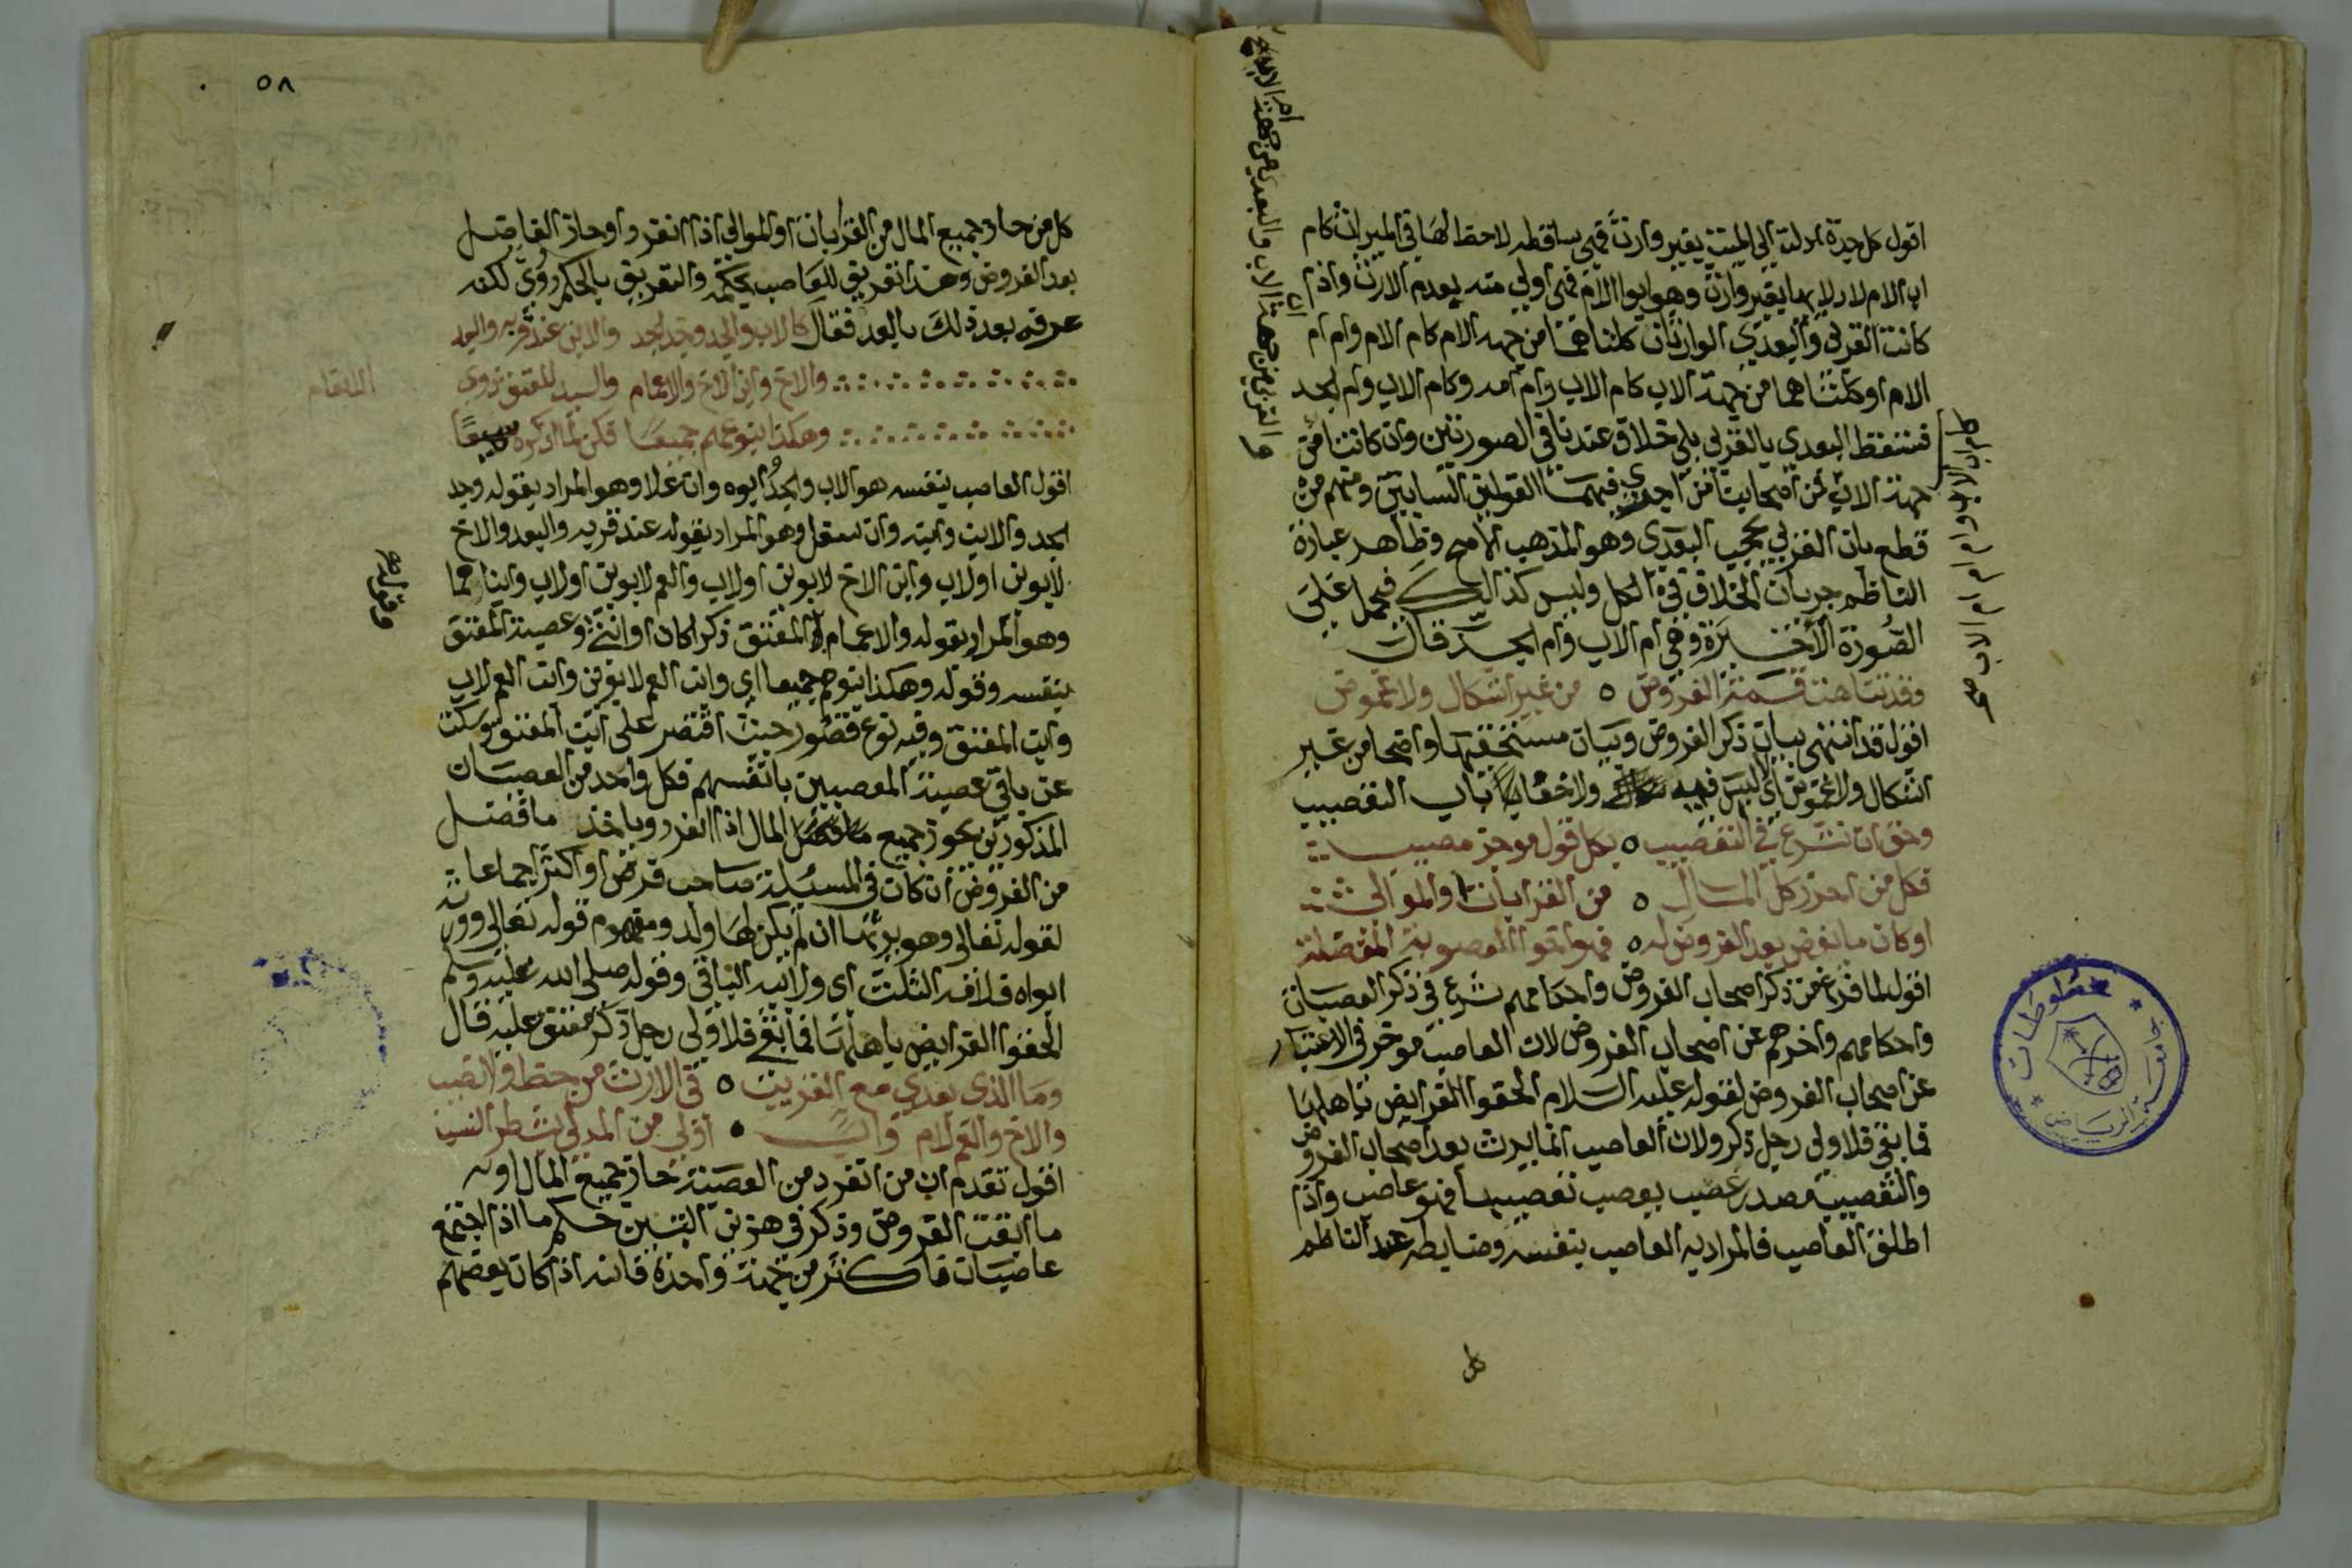 اقول كل جدة ادلت الى الميت بغير وارث فهي ساقطه لاحظ لها في الميراث كام
اب الام لادلايها بغير وارث وهو ابو الام فهي اولى منه بعدم الارث واذا
كانت القربى والبعدى الوارثتان كلتاهما من جهه الام كام الام وام ام
الام او كلتاهما من جهة الاب كام الاب وام امه وكام الاب وام الجد
فتسقط البعدى بالقربى بلا خلاف عندنا في الصورتين وان كانتا من
جهة الاب فمن اصحابنا من اجرى فيهما القولين السابقين ومنهم من
قطع بان القربى تحجب البعدى وهو المذهب الاصح وظاهر عبارة
الناظم جريان الخلاف في الكل وليس كذالك فيحمل على
الصورة الاخيرة وهي ام الاب وام الجد قال
وقد تناهت قسمة الفروض ٥ من غير اشكال ولا غموض
اقول قد انتهى بيان ذكر الفروض وبيان مستحقيها واضحا من غير
اشكال ولا غموض اي لا لبس فيه ولا خفاء باب التعصيب
وحق ان نشرع في التعصيب ٥ بكل قول موجز مصيب
فكل من احرز كل المال ٥ من القرابات او الموالى
او كان ما يفضل بعد الفرض له ٥ فهو اخو العصوبة المفضلة
اقول لما فرغ من ذكر اصحاب الفروض واحكامهم شرع في ذكر العصبات
واحكامهم واخرهم عن اصحاب الفروض لان العاصب موخر في الاعتبار
عن اصحاب الفروض لقوله عليه السلام الحقوا الفرايض باهلها
فما بقي فلاولى رجل ذكر ولان العاصب انما يرث بعد اصحاب الفروض
والتعصيب مصدر عصب يعصب تعصيبا فهو عاصب واذا
اطلق العاصب فالمراد به العاصب بنفسه وضابطه عند الناظم
كل
والقربى من جهة الاب والبعدى من جهة
ام الاب
جامعة الرياض
مخطوطات
٥٨
كل من حاز جميع المال من القرابات او الموالي اذا انفرد او حاز الفاضل
بعد الفروض وهذا تعريف للعاصب بحكمه والتعريف بالحكم دوري لكنه
عرفه بعد ذلك بالعد فقال كالاب والجد وجد الجد والابن عند قربه والبعد
والاخ وابن الاخ والاعمام والسيد المعتق ذوى
الانعام
وهكذا بنوهم جميعا فكن لما اذكره سميعا
اقول العاصب بنفسه هو الاب والجد ابوه وان علا وهو المراد بقوله وجد
الجد والابن وابنه وان سفل وهو المراد بقوله عند قربه والبعد والاخ
لابوين او لاب وابن الاخ لابوين او لاب والعم لابوين او لاب وابناهما
وهو المراد بقوله والاعمام المعتق ذكرا كان او انثى وعصبة المعتق
بنفسه وقوله وهكذا بنوهم جميعا اي وابن العم لابوين وابن العم لاب
وابن المعتق وفيه نوع قصور حيث اقتصر على ابن المعتق وسكت
عن باقي عصبة المعصبين بانفسهم فكل واحد من العصبات
المذكورين يحوز جميع المال اذا انفرد وياخذ ما فضل
من الفروض ان كان في المسئلة صاحب فرض او اكثر اجماعا
لقوله تعالى وهو يرثها ان لم يكن لها ولد ومفهوم قوله تعالى وورثه
ابواه فلامه الثلث اى ولابيه الباقي وقوله صلى الله عليه وسلم
الحقوا الفرايض باهلها فما بقي فلاولى رجل ذكر متفق عليه قال
وما لذى بعدي مع القريب ٥ في الارث من حظ ولا نصيب
والاخ والعم لام واب ٥ اولى من المدلى بشطر النسب
اقول تقدم ان من انفرد من العصبة حاز جميع المال او
ما ابقت الفروض وذكر في هذين البيتين حكم ما اذا اجتمع
عاصبان فاكثر من جهة واحدة فانه اذا كان بعضهم
وقوله